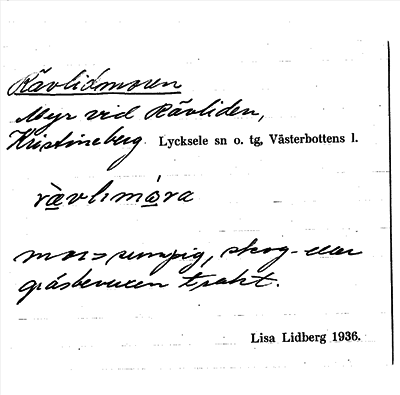 Rävlidmoran
Myr vid Rävliden,
Kristineberg Lycksele sn o. tg, Västerbottens l.
rävlımåra
mor = sumpig, skog- eller
gräsbevuxen trakt.
Lisa Lidberg 1936.